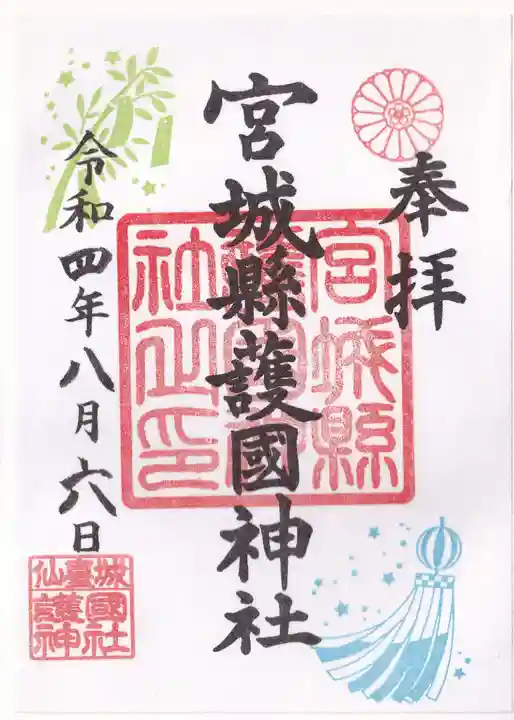 奉拝
宮城縣護國神社
令和四年八月六日
宮城縣
護國神
社之印
仙臺城
護國神社